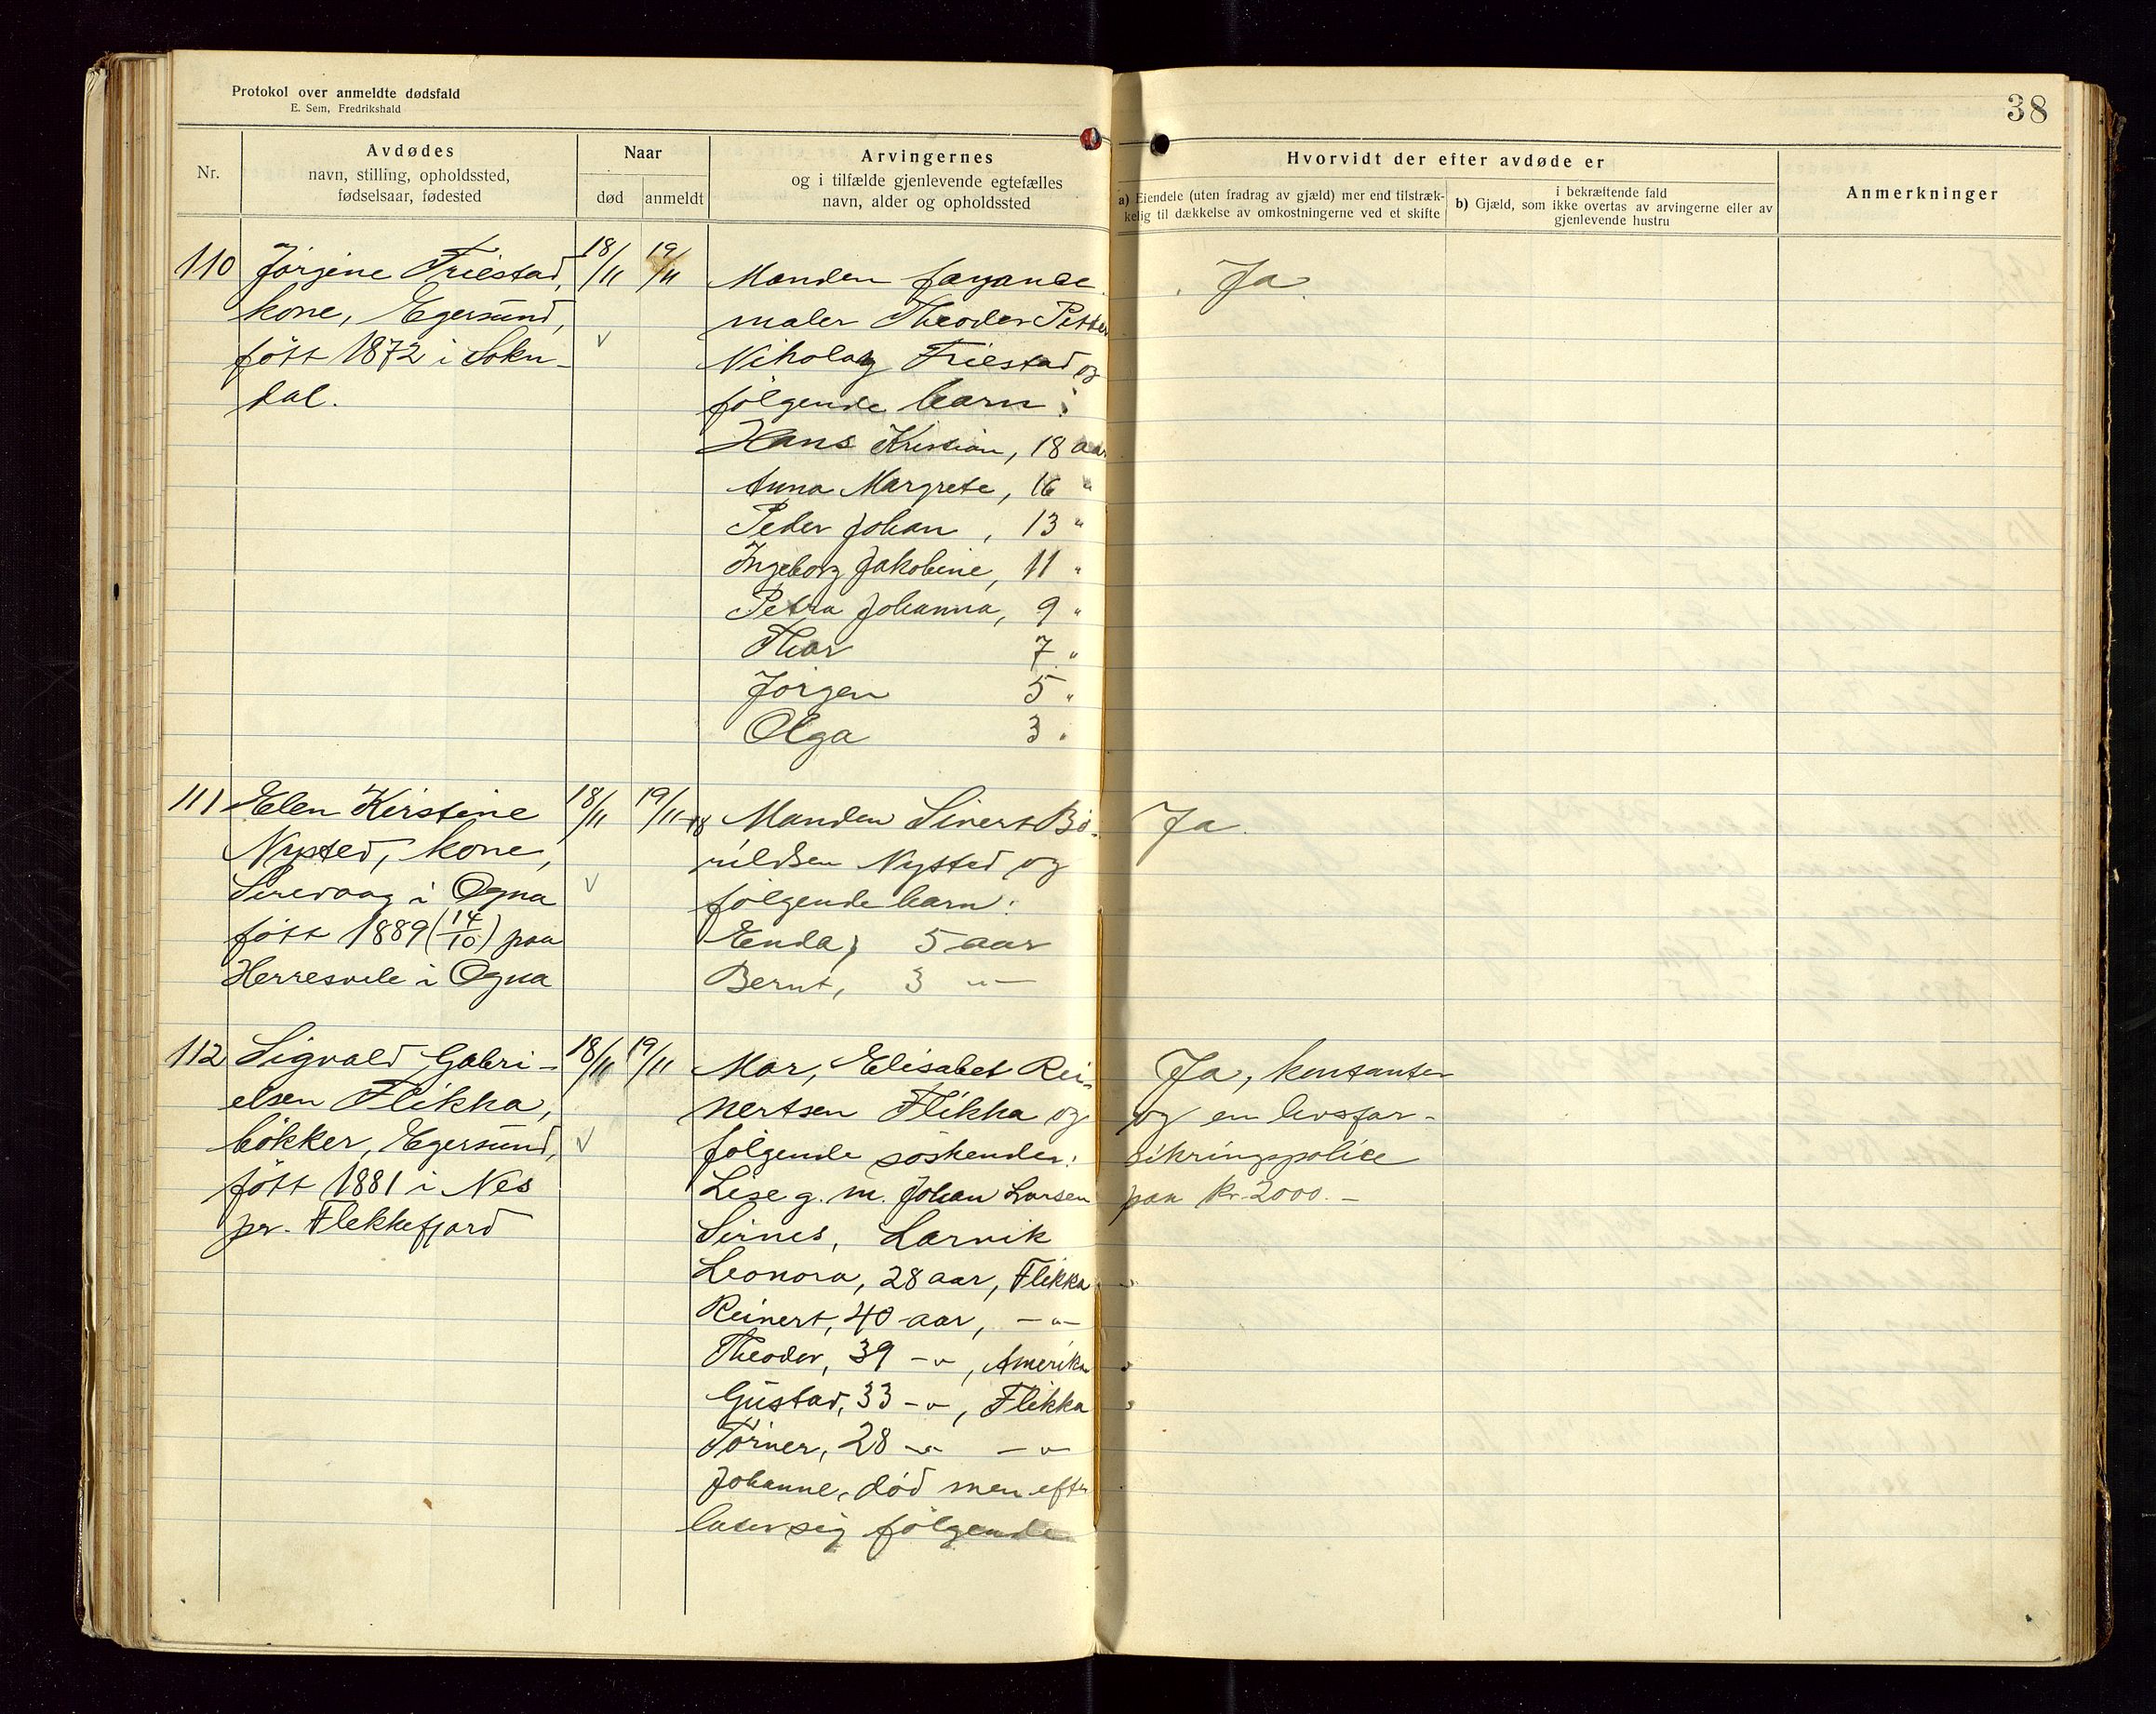 Protokol over anmeldte dødsfald
E. Sem, Fredrikshald
38
Nr.
Avdødes
navn, stilling, opholdssted,
fødselsaar, fødested
Naar
død
anmeldt
Arvingernes
og i tilfælde gjenlevende egtefælles
navn, alder og opholdssted
Hvorvidt der efter avdøde er
a) Eiendele (uten fradrag av gjæld) mer end tilstræk-
kelig til dækkelse av omkostningerne ved et skifte
i bekræftende fald
b) Gjæld, som ikke overtas av arvingerne eller av
gjenlevende hustru
Anmerkninger
110 Jörgine Friestad, 18/11 19/11 Manden fayance Ja
kone, Egersund, maler Theodor Petter
født 1872 i Sokn- Nikolay Friestad og
dal. følgende barn:
Hans Kristian, 18 aar
Anna Margrete, 16 "
Peder Johan, 13 "
Ingeborg Jakobine, 11 "
Petra Johanna, 9 "
Thor 7 "
Jørgen 5 "
Olga 3 "
111 Elen Kirstine 18/11 19/11-18 Manden Sivert Bö- Ja
Nysted, kone, rildsen Nysted og
Sirevaag i Ogna følgende barn:
født 1889 (14/10) paa Enda, 5 aar
Herresvele i Ogna Bernt, 3 -"-
112 Sigvald Gabri- 18/11 19/11 Mor, Elisabet Rei- Ja, kontanter
elsen Flikka, nertsen Flikka og og en livsfor-
bökker, Egersund, følgende søskender: sikringspolice
født 1881 i Nes Lise g. m. Johan Larsen paa kr. 2000.-
pr. Flekkefjord Sirnes, Larvik
Leonora, 28 aar, Flikka
Reinert, 40 aar, -"-
Theodor, 39 -"-, Amerika
Gustav, 33 -"-, Flikka
Törner, 28 -"- -"-
Johanne, död men efter
later sig følgende